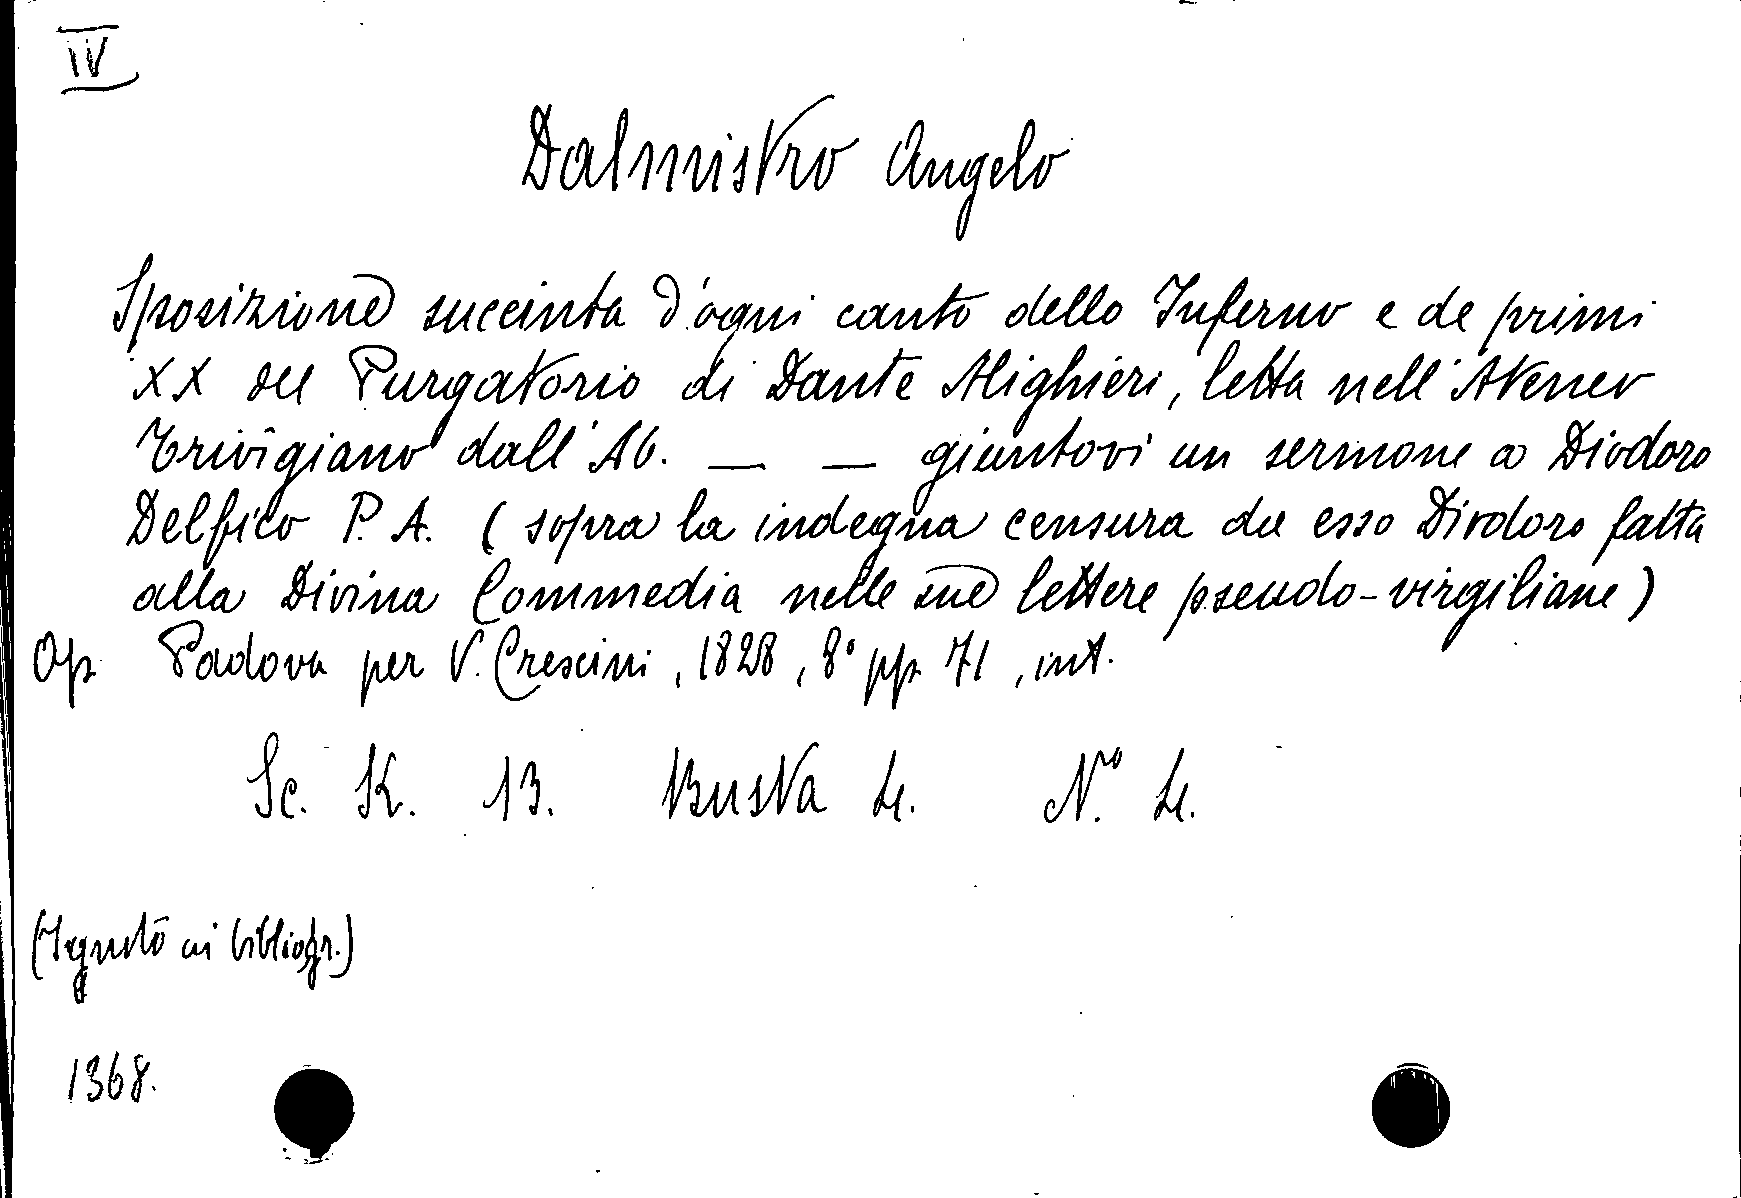 IV
Dalmistro Angelo
Sposizione succinta d'ogni canto dello Inferno e de primi
XX del Purgatorio di Dante Alighieri, letta nell'Ateneo
Trivigiano dall'Ab. — — giuntovi un sermone a Diodoro
Delfico P. A. (sopra la indegna censura da esso Diodoro fatta
alla Divina Commedia nelle sue lettere pseudo-virgiliane)
Op. Padova per V. Crescini, 1828, 8° pp. 71, int.
Sc. K. 13. Busta 4. N.° 4.
bibliogr.)
1368.